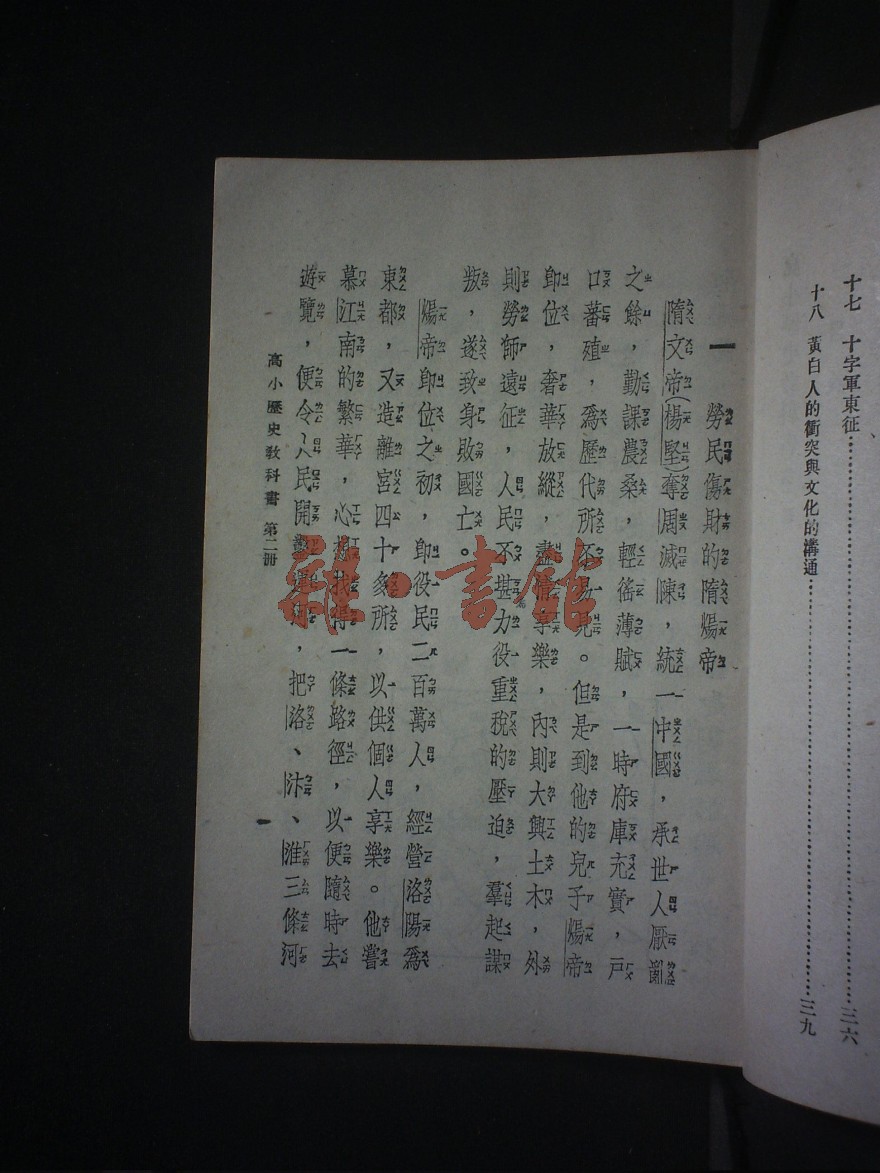 十七 十字軍東征……………………三六
十八 黃白人的衝突與文化的溝通……………………三九
一 勞民傷財的隋煬帝
隋文帝(楊堅)奪周滅陳，統一中國，承世人厭亂
之餘，勤課農桑，輕徭薄賦，一時府庫充實，戶
口蕃殖，爲歷代所不易見。但是到他的兒子煬帝
即位，奢華放縱，盡情享樂，內則大興土木，外
則勞師遠征，人民不堪力役重稅的壓迫，羣起謀
叛，遂致身敗國亡。
煬帝即位之初，即役民二百萬人，經營洛陽爲
東都，又造離宮四十多所，以供個人享樂。他嘗
慕江南的繁華，心想找得一條路徑，以便隨時去
遊覽，便令人民開鑿運河，把洛、汴、淮三條河
高小歷史教科書 第二冊
一
雜·書館